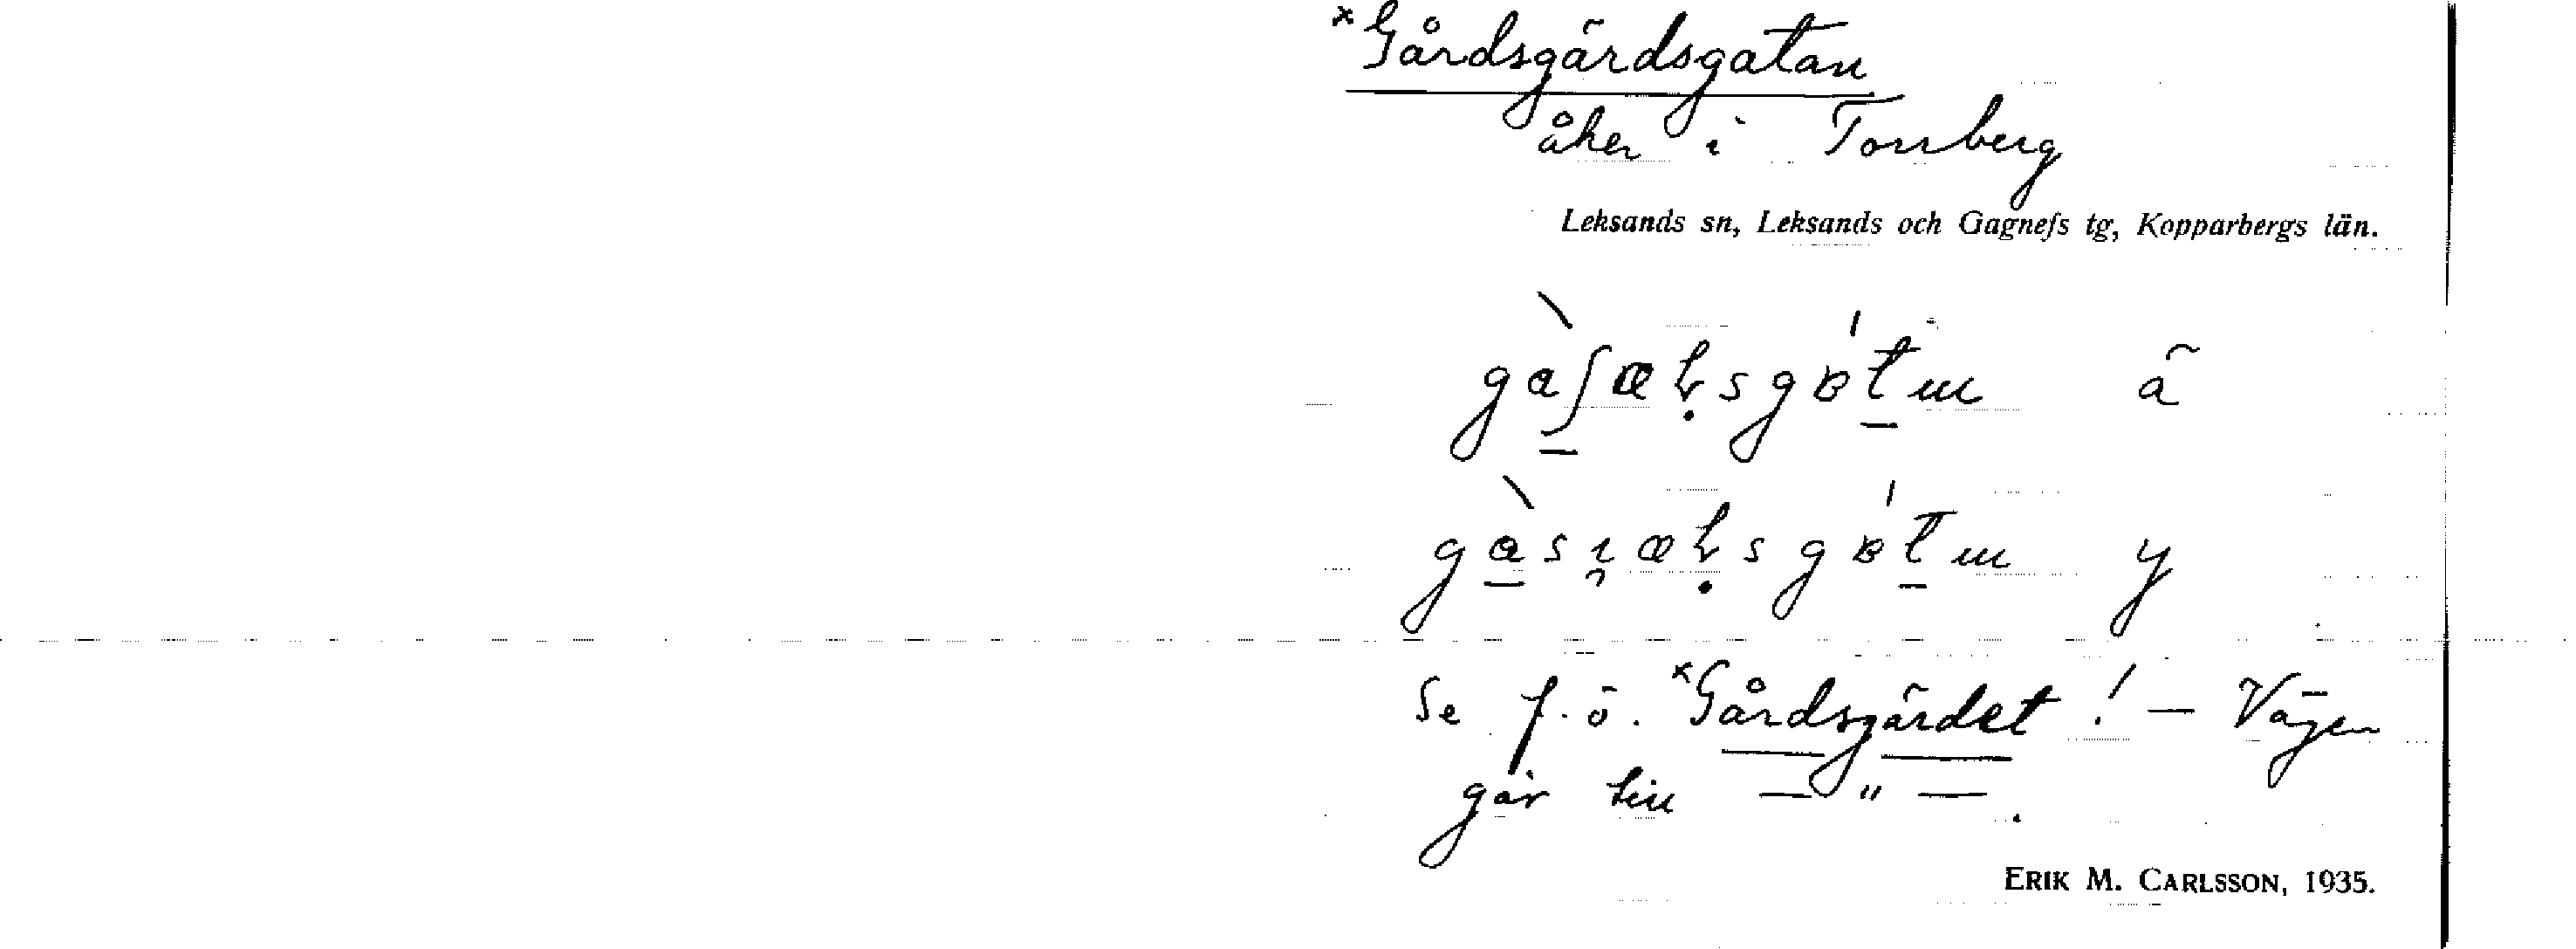 ×Gårdsgärdsgatan
åker i Torrberg
Leksands sn, Leksands och Gagnefs tg, Kopparbergs län.
ä
y
Se f. ö. ×Gårdsgärdet! — Vägen
går till — " — .
ERIK M. CARLSSON, 1935.